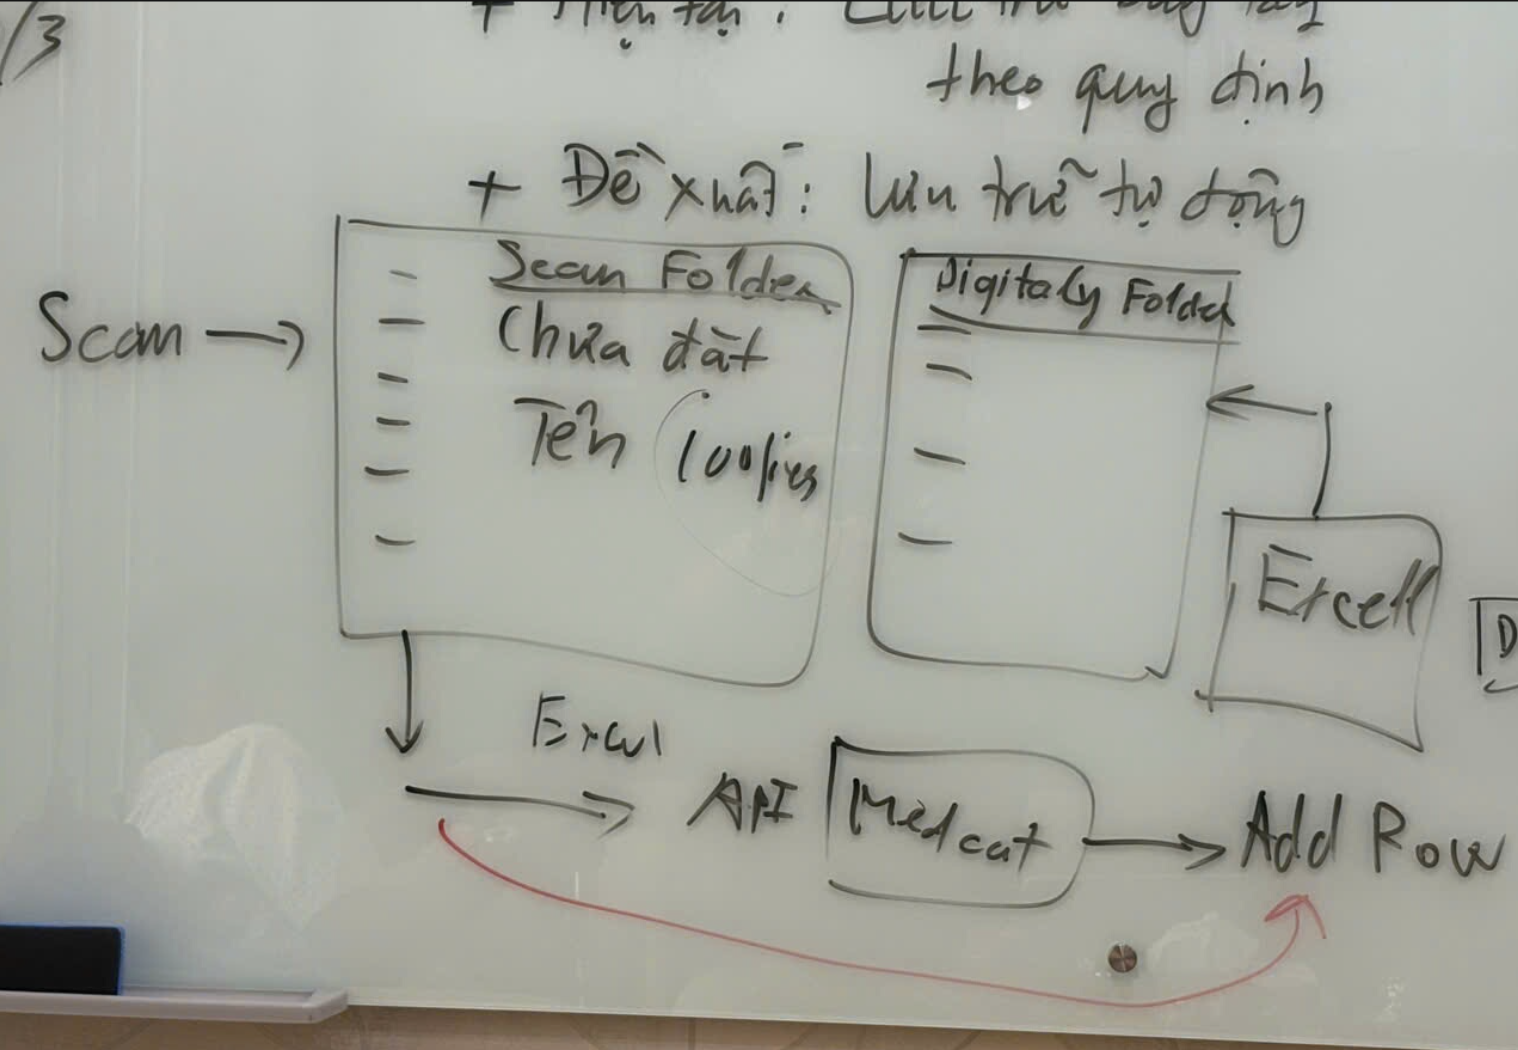 /3
+ Hiện tại: Lưu trữ bằng tay
theo quy định
+ Đề xuất: Lưu trữ tự động
Scan
Scan Folder
Chưa đặt
Tên
Digitaly Folder
Excell
D
Excel
API
Medcat
Add Row